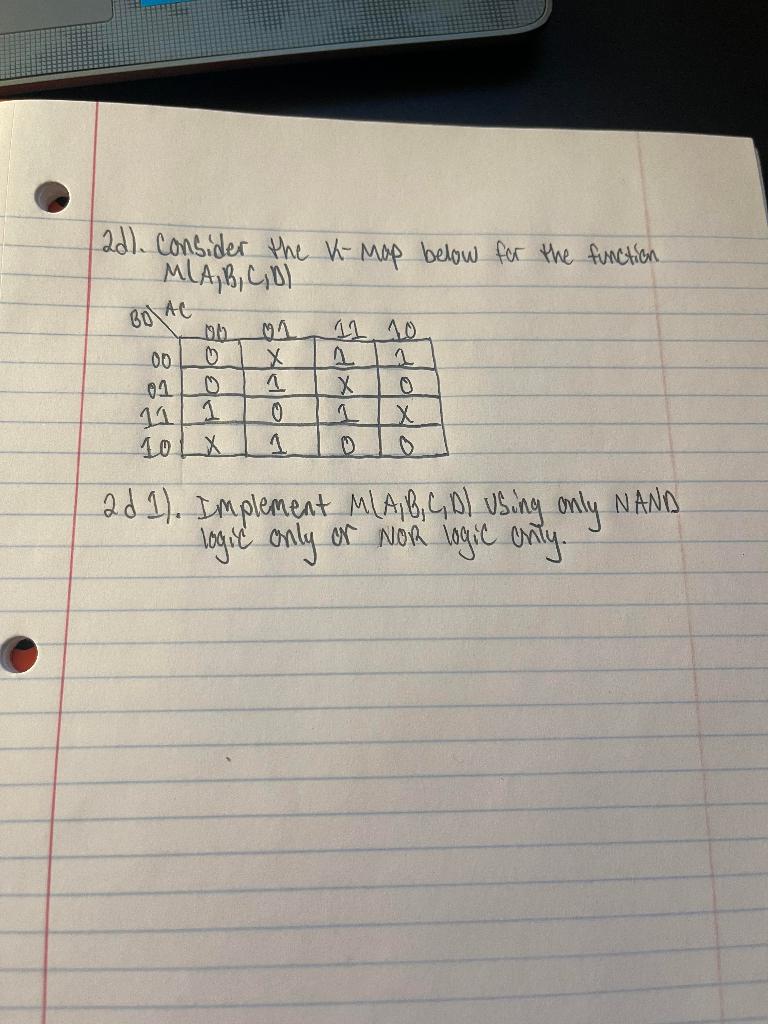 2d). Consider the K-Map below for the function
M(A,B,C,D)
BD\AC
00 01 11 10
00 0 X 1 1
01 0 1 X 0
11 1 0 1 X
10 X 1 0 0
2d 1). Implement M(A,B,C,D) using only NAND
logic only or NOR logic only.